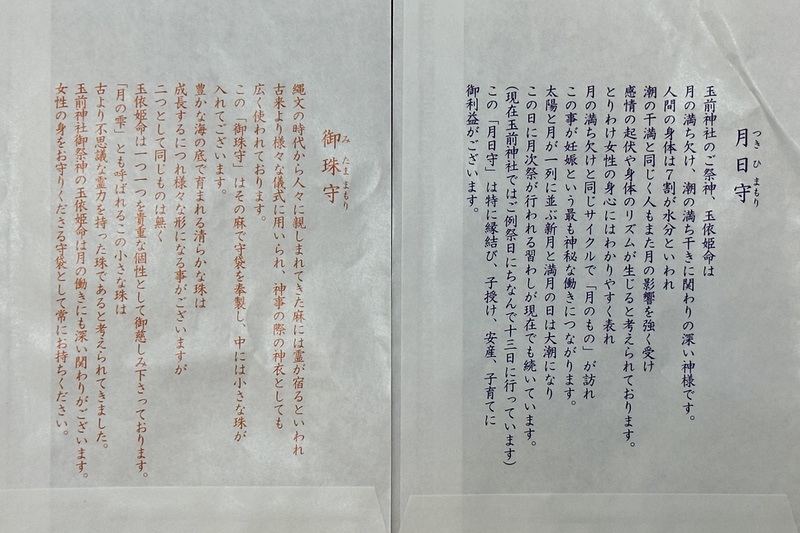 月日守
つきひまもり
玉前神社のご祭神、玉依姫命は
月の満ち欠け、潮の満ち干きに関わりの深い神様です。
人間の身体は7割が水分といわれ
潮の干満と同じく人もまた月の影響を強く受け
感情の起伏や身体のリズムが生じると考えられております。
とりわけ女性の身心にはわかりやすく表れ
月の満ち欠けと同じサイクルで「月のもの」が訪れ
この事が妊娠という最も神秘な働きにつながります。
太陽と月が一列に並ぶ新月と満月の日は大潮になり
この日に月次祭が行われる習わしが現在でも続いています。
(現在玉前神社ではご例祭日にちなんで十三日に行っています)
この「月日守」は特に縁結び、子授け、安産、子育てに
御利益がございます。
御珠守
みたままもり
縄文の時代から人々に親しまれてきた麻には霊が宿るといわれ
古来より様々な儀式に用いられ、神事の際の神衣としても
広く使われております。
この「御珠守」はその麻で守袋を奉製し、中には小さな珠が
入れてございます。
豊かな海の底で育まれる清らかな珠は
成長するにつれ様々な形になる事がございますが
二つとして同じものは無く
玉依姫命は一つ一つを貴重な個性として御慈しみ下さっております。
「月の雫」とも呼ばれるこの小さな珠は
古より不思議な霊力を持った珠であると考えられてきました。
玉前神社御祭神の玉依姫命は月の働きにも深い関わりがございます。
女性の身をお守りくださる守袋として常にお持ちください。